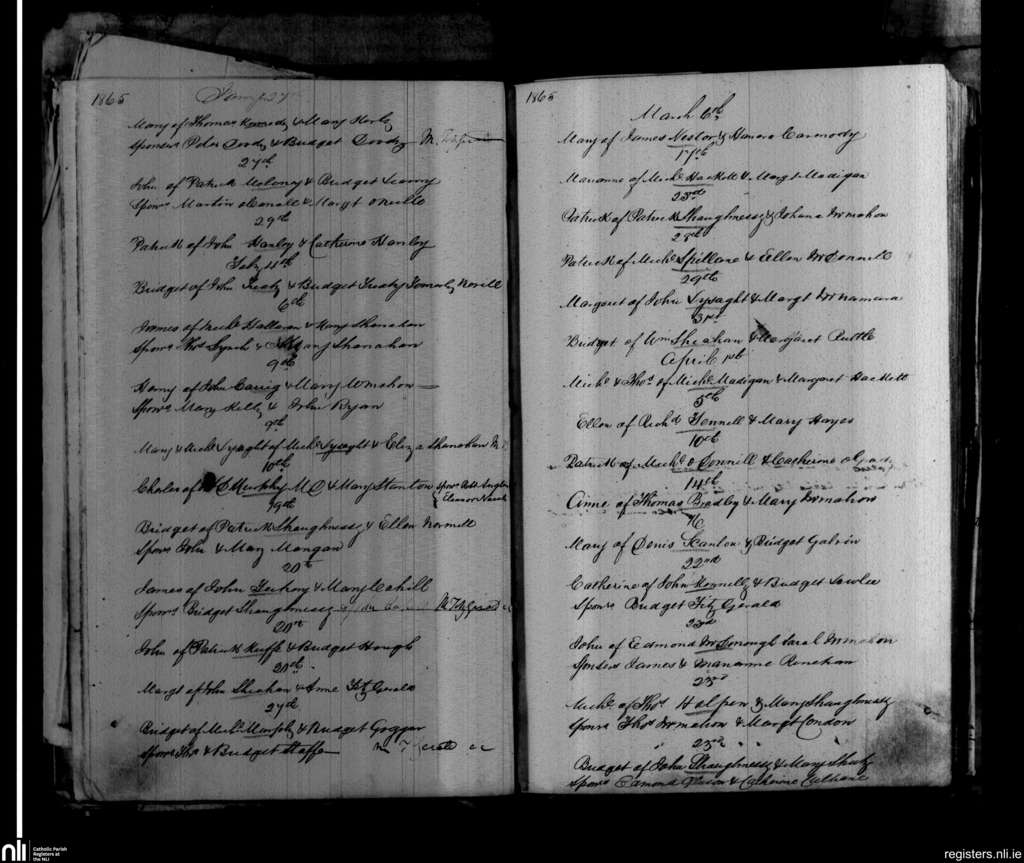 1865
Mary of Thomas Kennedy & Mary
Sponsers Peter & Bridget M.
27th
John of Patrick Moloney & Bridget
Sponrs Martin & Margt
29th
Patrick of John Hanley & Catherine Hanley
Feby
Bridget of John Treaty & Bridget Treaty Formerly
6th
James of Michl Halloran & Mary Shanahan
Sponrs Thos Lynch & Mary Shanahan
9th
Henry of John & Mary McMahon
Sponrs Mary Kelly & John Ryan
9th
Mary & Michl Lysaght of Michl Lysaght & Eliza Shanahan
10th
Charles of Murphy MD & Mary Stanton Sponrs
Eleanor
19th
Bridget of Patrick Shaughnessy & Ellen
Sponrs John & Mary Mangan
20th
James of John & Mary Cahill
Sponrs Bridget Shaughnessy
20th
John of Patrick Keeffe & Bridget Hough
20th
Margt of John Sheehan & Anne FitzGerald
27th
Bridget of Michl Murphy & Bridget Goggin
Sponrs Thos & Bridget
1865
March 6th
Mary of James Nestor & Honora Carmody
17th
Marianne of Michl Hackett & Margt Madigan
23rd
Patrick of Patrick Shaughnessy & Johana McMahon
28th
Patrick of Michl Spillane & Ellen McDonnell
29th
Margaret of John Lysaght & Margt McNamara
31st
Bridget of Wm Sheahan & Margaret
April 1st
Michl & Thos of Michl Madigan & Margaret Hackett
5th
Ellen of Richd & Mary Hayes
10th
Patrick of Michl O Donnell & Catherine
14th
Anne of Thomas Bradley & Mary McMahon
16
Mary of Denis Scanlon & Bridget Galvin
22nd
Catherine of John Kennelly & Bridget Lawlee
Sponrs Bridget Fitz Gerald
23rd
John of Edmond McDonough Sarah McMahon
Sponsers James & Marianne Renehan
23rd
Michl of Thos Halpen & Mary Shaughnessy
Sponrs Thos McMahon & Margt Condon
23rd
Bridget of John Shaughnessy & Mary Sheehy
Sponrs Edmond & Catherine Culhane
nli
Catholic Parish
Registers at
the NLI
registers.nli.ie